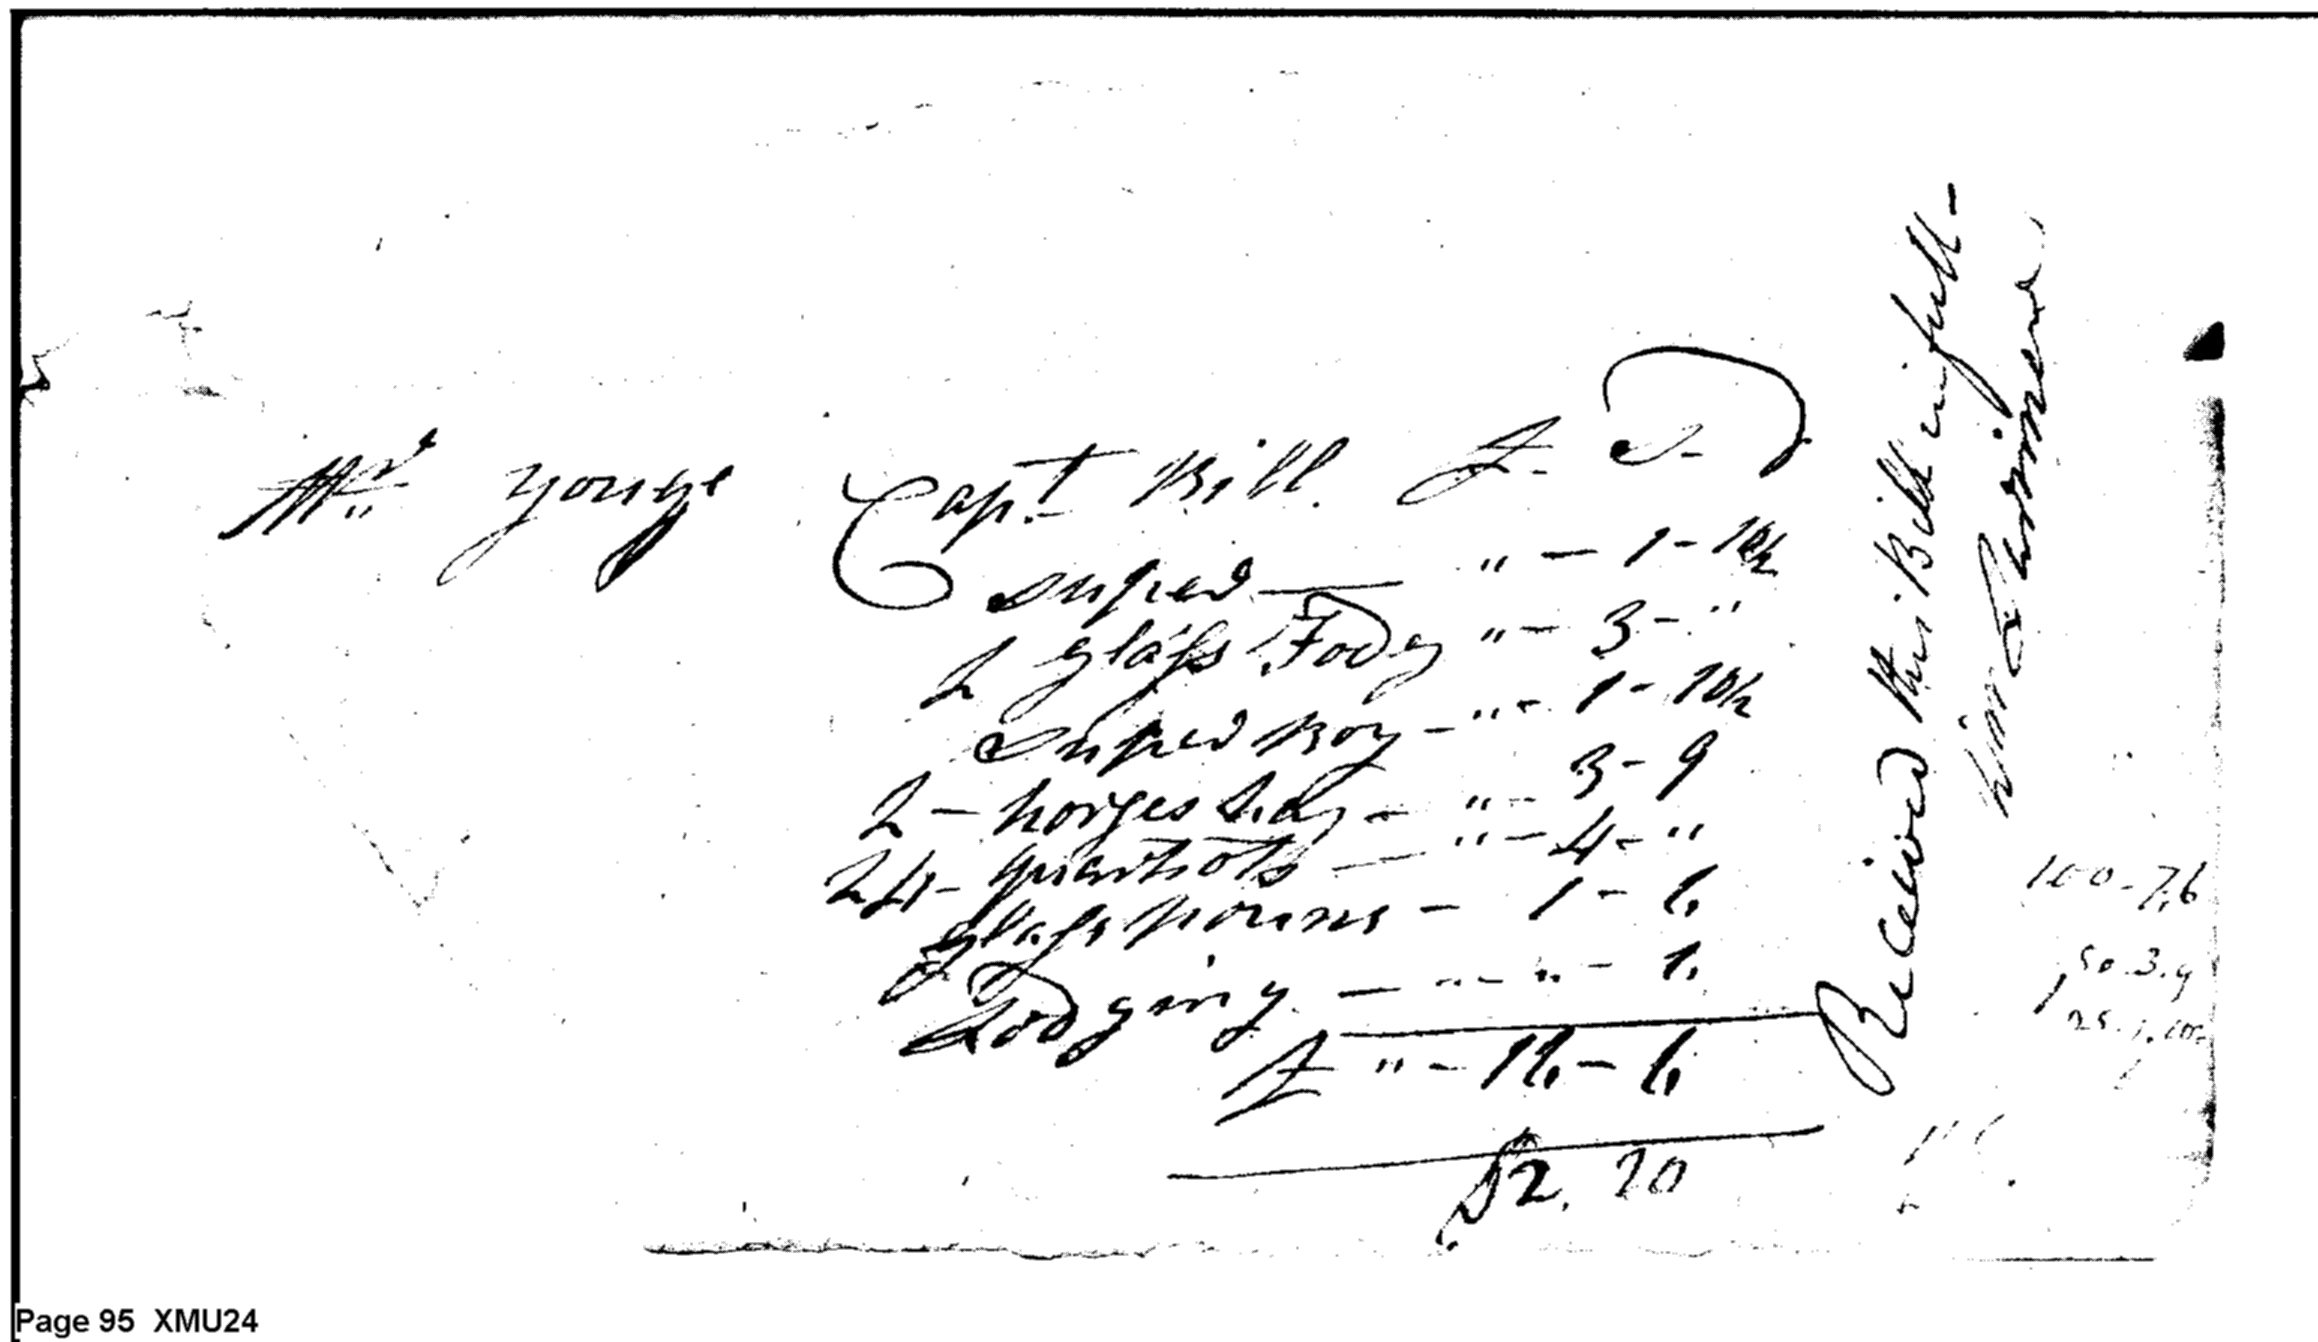 Mr. Younge Capt. Bill. £. S. D
Suped — " — 1 - 10½
2 Glass Tody " — 3 - "
Suped Boy - " - 1 - 10½
2 — horses hay - " - 3 - 9
24 - quarts ots — " - 4 - "
Glass — 1 - 6
Lodging — " - " - 6
£ " - 16 - 6
$2. 70
Received this Bill in full -
100 - 7,6
50 . 3 . 9
25 . 1 . 10
Page 95 XMU24